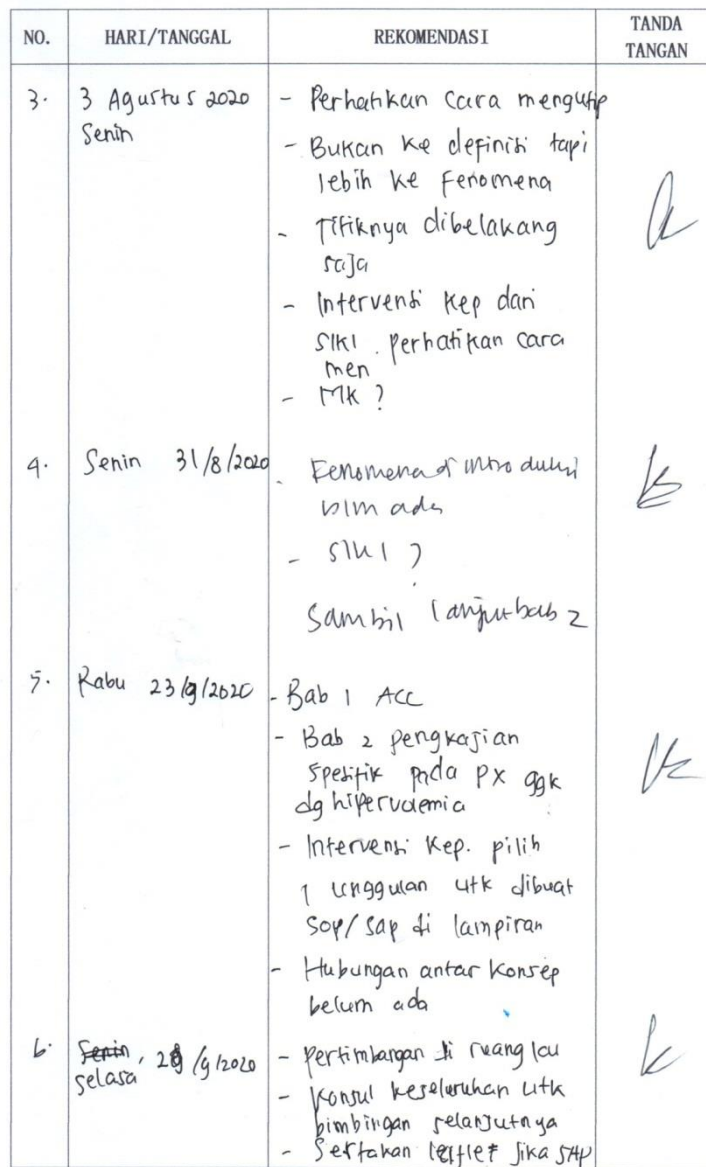 NO. HARI/TANGGAL REKOMENDASI TANDA TANGAN
3. 3 Agustus 2020 - Perhatikan cara mengutip
Senin
- Bukan ke definisi tapi
lebih ke Fenomena
- Titiknya dibelakang
saja
- Intervensi Kep dari
SIKI. perhatikan cara
men
- MK ?
4. Senin 31/8/2020 - Fenomena di introduksi
blm ada
- SIKI ?
Sambil lanjut bab 2
5. Rabu 23/9/2020 - Bab 1 ACC
- Bab 2 pengkajian
spesifik pada px ggk
dg hipervolemia
- Intervensi Kep. pilih
1 unggulan utk dibuat
SOP/SAP di lampiran
- Hubungan antar Konsep
belum ada
6. Senin, /9/2020 - Pertimbangan di ruang
selasa
- Konsul keseluruhan utk
bimbingan selanjutnya
- Sertakan leaflet jika SAP